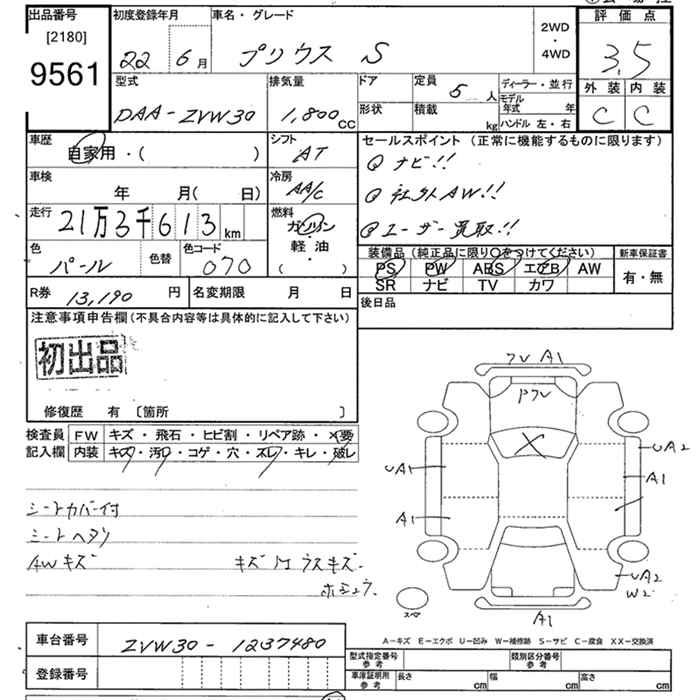 出品番号
[2180]
9561
初度登録年月
22年 6月
車名・グレード
プリウス S
2WD
・
4WD
評価点
3.5
外装 内装
C C
型式
DAA-ZVW30
排気量
1,800cc
ドア
形状
定員 5人
積載 kg
ディーラー・並行
モデル年式 年
ハンドル 左・右
車歴
自家用・( )
シフト
AT
車検
年 月( 日)
冷房
AA/C
走行
21万3千613km
燃料
ガソリン
軽油
( )
色
パール
色替
色コード
070
R券 13,190円
名変期限 月 日
セールスポイント (正常に機能するものに限ります)
ナビ!!
社外AW!!
ユーザー買取!!
装備品 (純正品に限り○をつけてください)
PS PW ABS エアB AW
SR ナビ TV カワ
新車保証書
有・無
後日品
注意事項申告欄 (不具合内容等は具体的に記入して下さい)
初出品
修復歴 有 〔箇所 〕
検査員
記入欄
FW キズ・飛石・ヒビ割・リペア跡・×要
内装 キズ・汚レ・コゲ・穴・スレ・キレ・破レ
シートカバー付
シートヘタリ
AWキズ
キズ
ウスキズ
フレ A1
UA1
A1
UA2
A1
UA2
W2
A1
スペア
A-キズ E-エクボ U-凹み W-補修跡 S-サビ C-腐食 XX-交換済
車台番号
ZVW30-1237480
登録番号
型式指定番号 参考
類別区分番号 参考
車庫証明用 参考
長さ cm
幅 cm
高さ cm